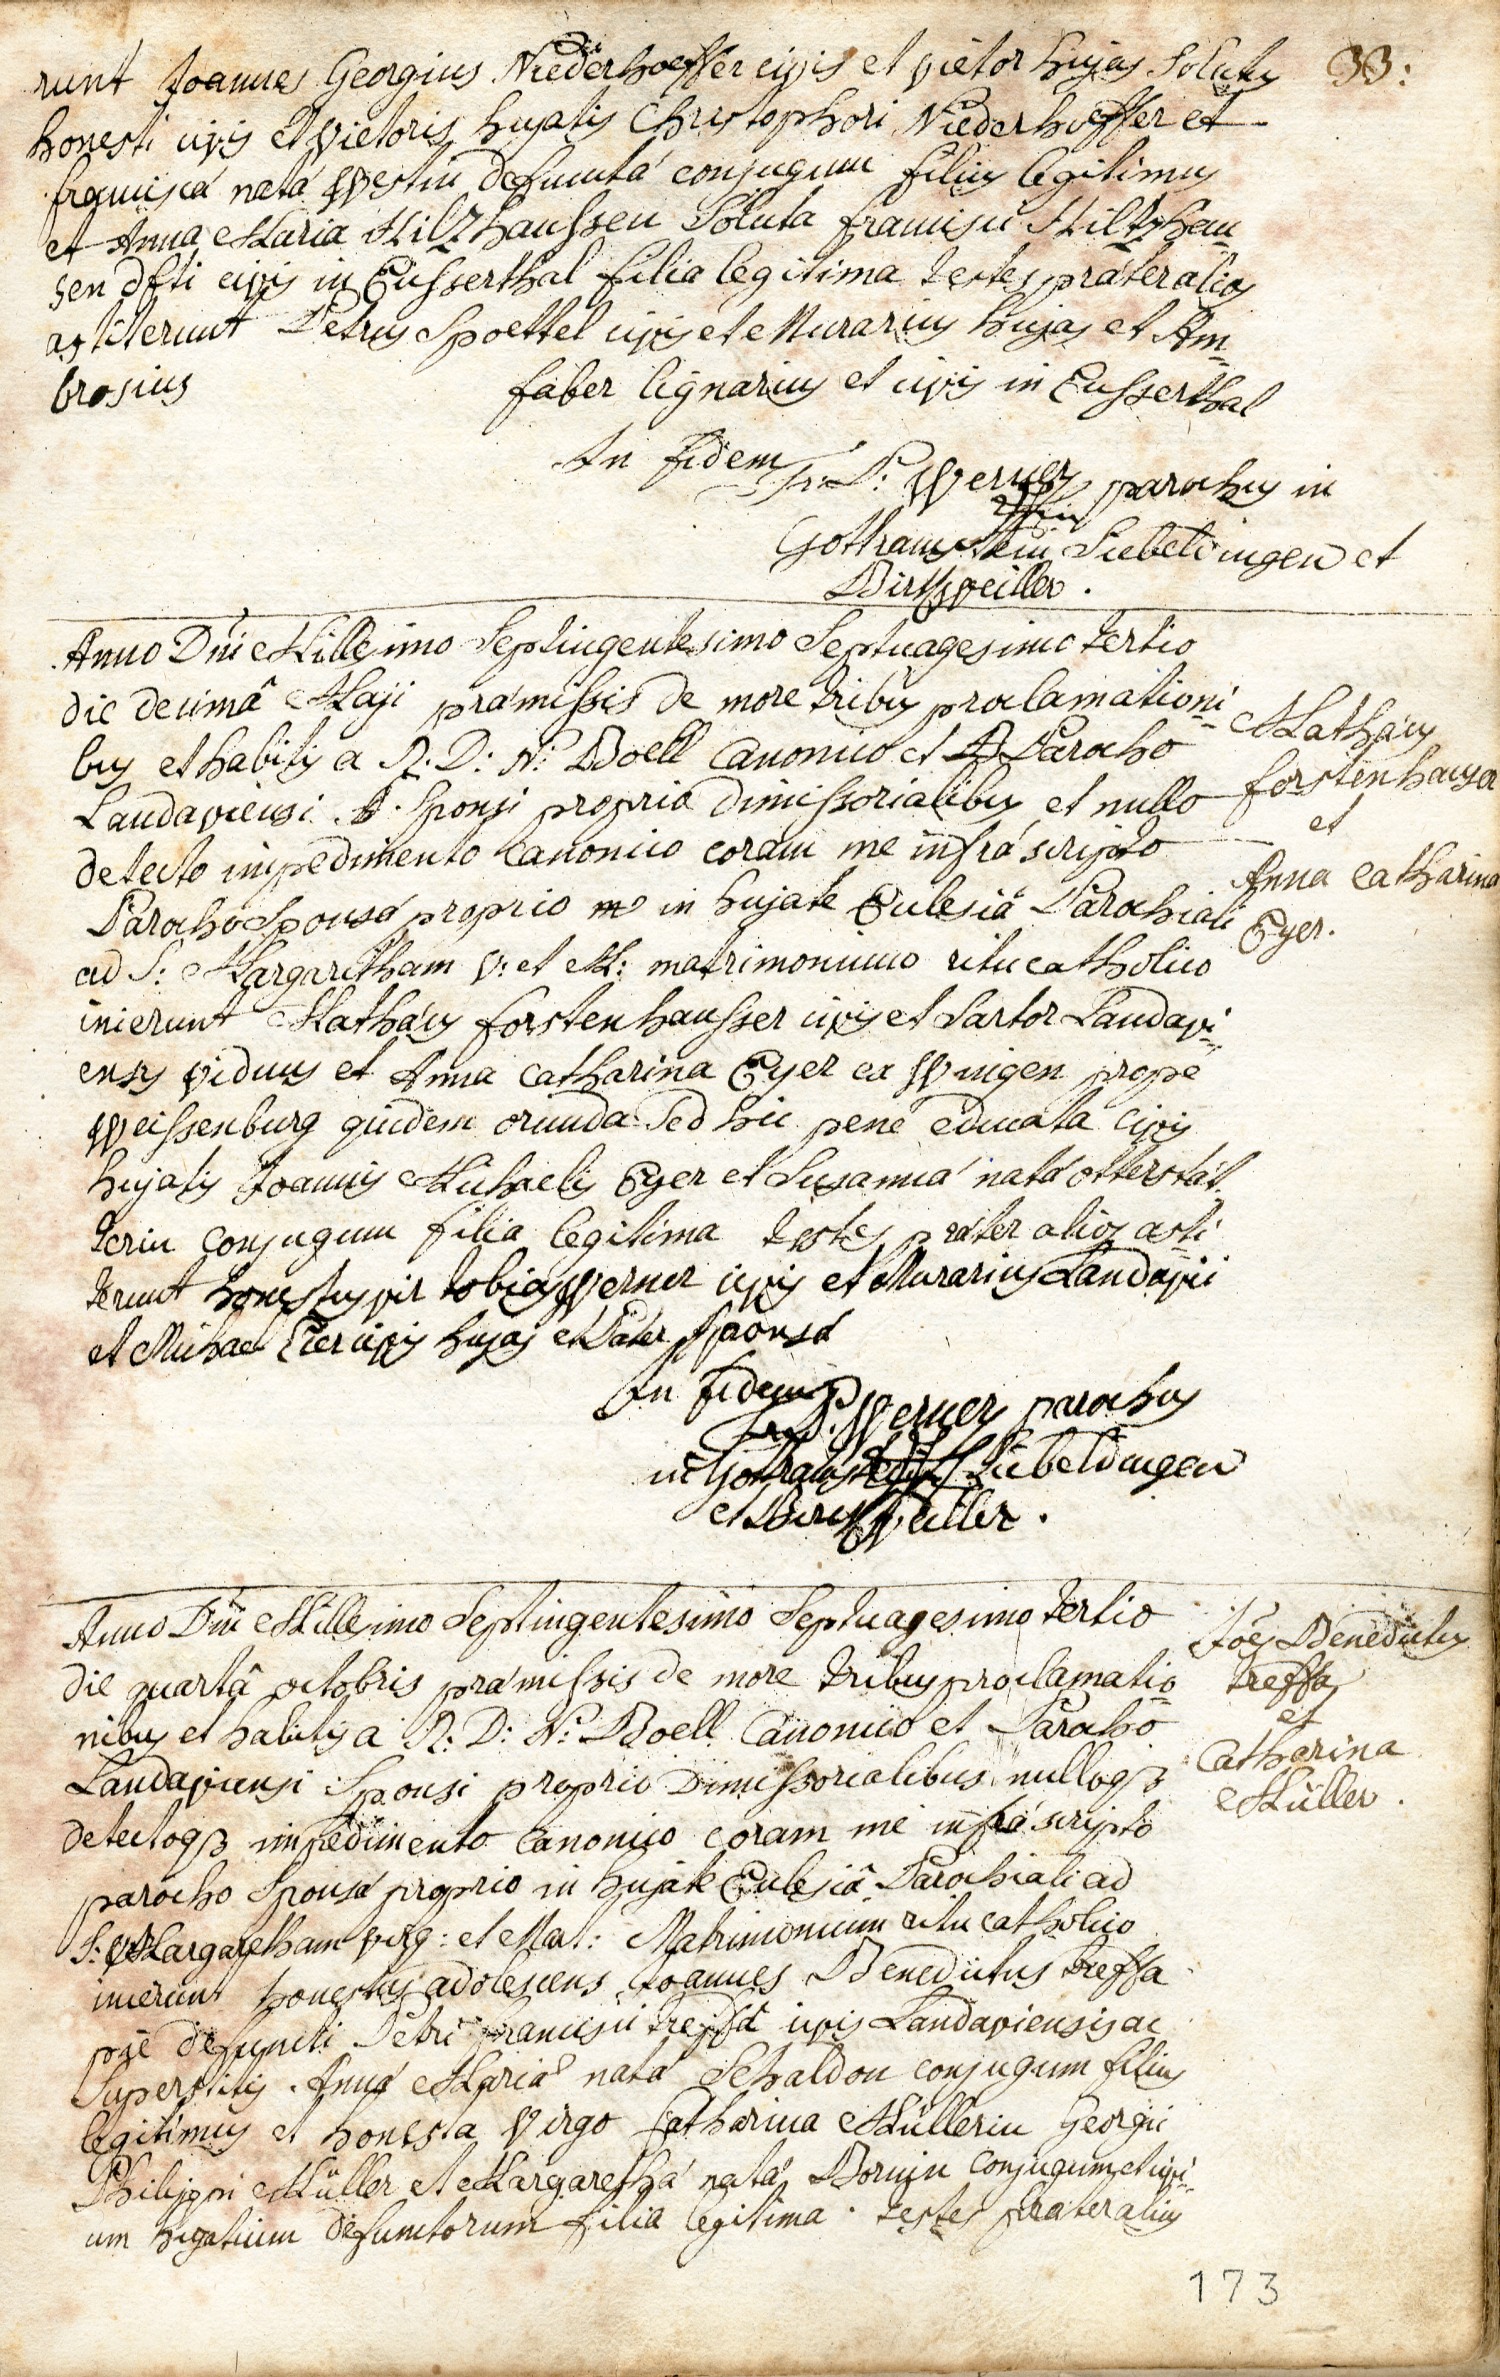 33:
runt Joannes Georgius Niederhoeffer civis et vietor hujas Solutus
honesti civis et vietoris hujatis Christophori Niederhoeffer et
francisca nata Westin defuncta conjugum filius legitimus
et Anna Maria Hilzhaussen Soluta francisci Hiltzhau-
sen dfti civis in Eusserthal filia legitima testes præter alios
astiterunt Petrus Spoettel civis et Murarius hujas et Am-
brosius faber lignarius et civis in Eusserthal
In fidem
Fr: P: Werner parochus in
Gotramstein Siebeldingen et
Birkweiller.
Anno Dni Millesimo Septingentesimo Septuagesimo tertio
die decimâ Maji præmissis de more tribus proclamationi-
bus et habitis a R: D: N: Boell Canonico et Parocho
Landaviensi Sponsi proprio dimissorialibus et nullo
detecto impedimento Canonico coram me infra scripto
Parocho Sponsæ proprio in hujate Ecclesiâ Parochiali
ad S: Margaretham V: et M: matrimonium ritu catholico
inierunt Mathæus forstenhausser civis et Sartor Landavi-
ensis viduus et Anna Catharina Eyer ex Wingen prope
Weissenburg quidem oriunda Sed hic pene educata civis
hujatis Joannis Michaelis Eyer et Susanna nata Otterstät-
terin Conjugum filia legitima testes præter alios asti-
terunt honestus vir tobias Werner civis et Murarius Landavii
et Michael Eier civis hujas et Pater Sponsæ
In fidem
Fr: P: Werner parochus
in Gotramstein Siebeldingen
et Birkweiller.
Mathæus
forstenhauser
et
Anna Catharina
Eyer.
Anno Dni Millesimo Septingentesimo Septuagesimo tertio
die quartâ octobris præmissis de more tribus proclamatio-
nibus et habitis a R: D: N: Boell Canonico et Parocho
Landaviensi Sponsi proprio Dimissorialibus nulloqz
detectoqz impedimento Canonico coram me infra scripto
parocho Sponsæ proprio in hujate Ecclesiâ Parochiali ad
S: Margaretham virg: et Mart: Matrimonium ritu catholico
inierunt honestus adolescens Joannes Benedictus treffa
pie defuncti Petri francisci treffa civis Landaviensis ac
Superstitis Anna Maria nata Sebaldon conjugum filius
legitimus et honesta Virgo Catharina Müllerin Georgii
Philippi Müller et Margaretha nata Bornin Conjugum et civi-
um hujatium defunctorum filia legitima testes præter alios
Joës Benedictus
treffa
et
Catharina
Müller.
173